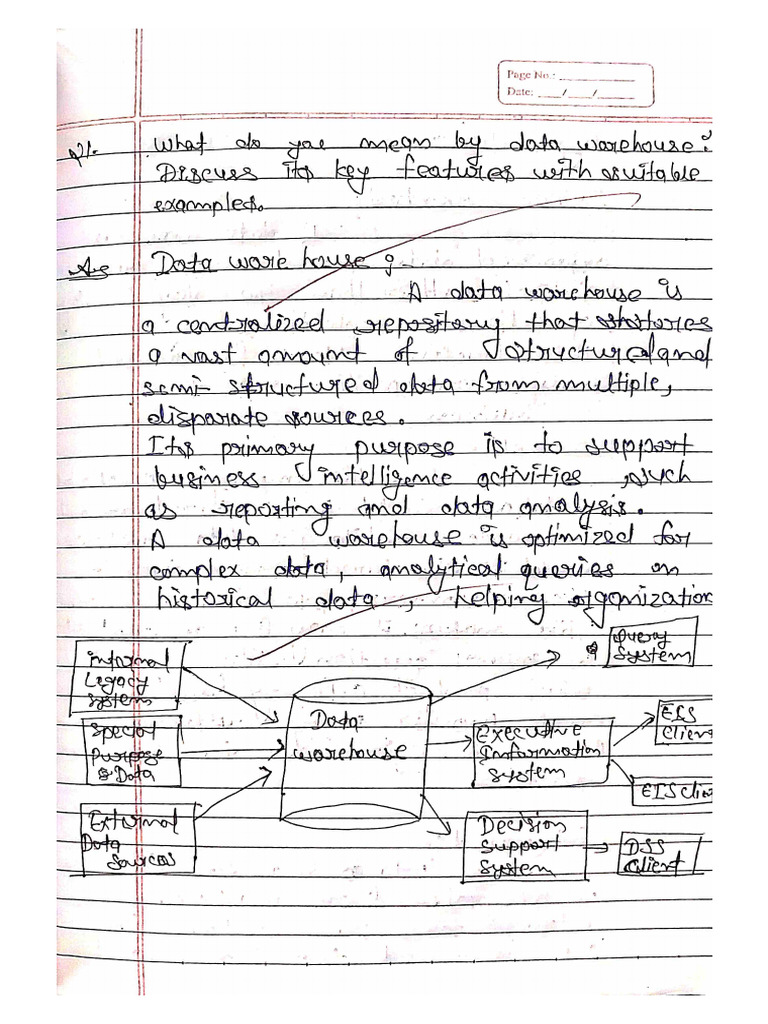 Page No.:
Date: / /
Q1. What do you mean by data warehouse?
Discuss its key features with suitable
examples.
Ans Data warehouse :-
A data warehouse is
a centralized repository that stories
a vast amount of structured and
semi-structured data from multiple,
disparate sources.
Its primary purpose is to support
business intelligence activities, such
as reporting and data analysis.
A data warehouse is optimized for
complex data, analytical queries on
historical data, helping organization
internal
Legacy
System
Special
Purpose
Data
External
Data
Sources
Data
warehouse
Query
System
Executive
Information
System
EIS
Client
EIS Clie
Decision
Support
System
DSS
Client